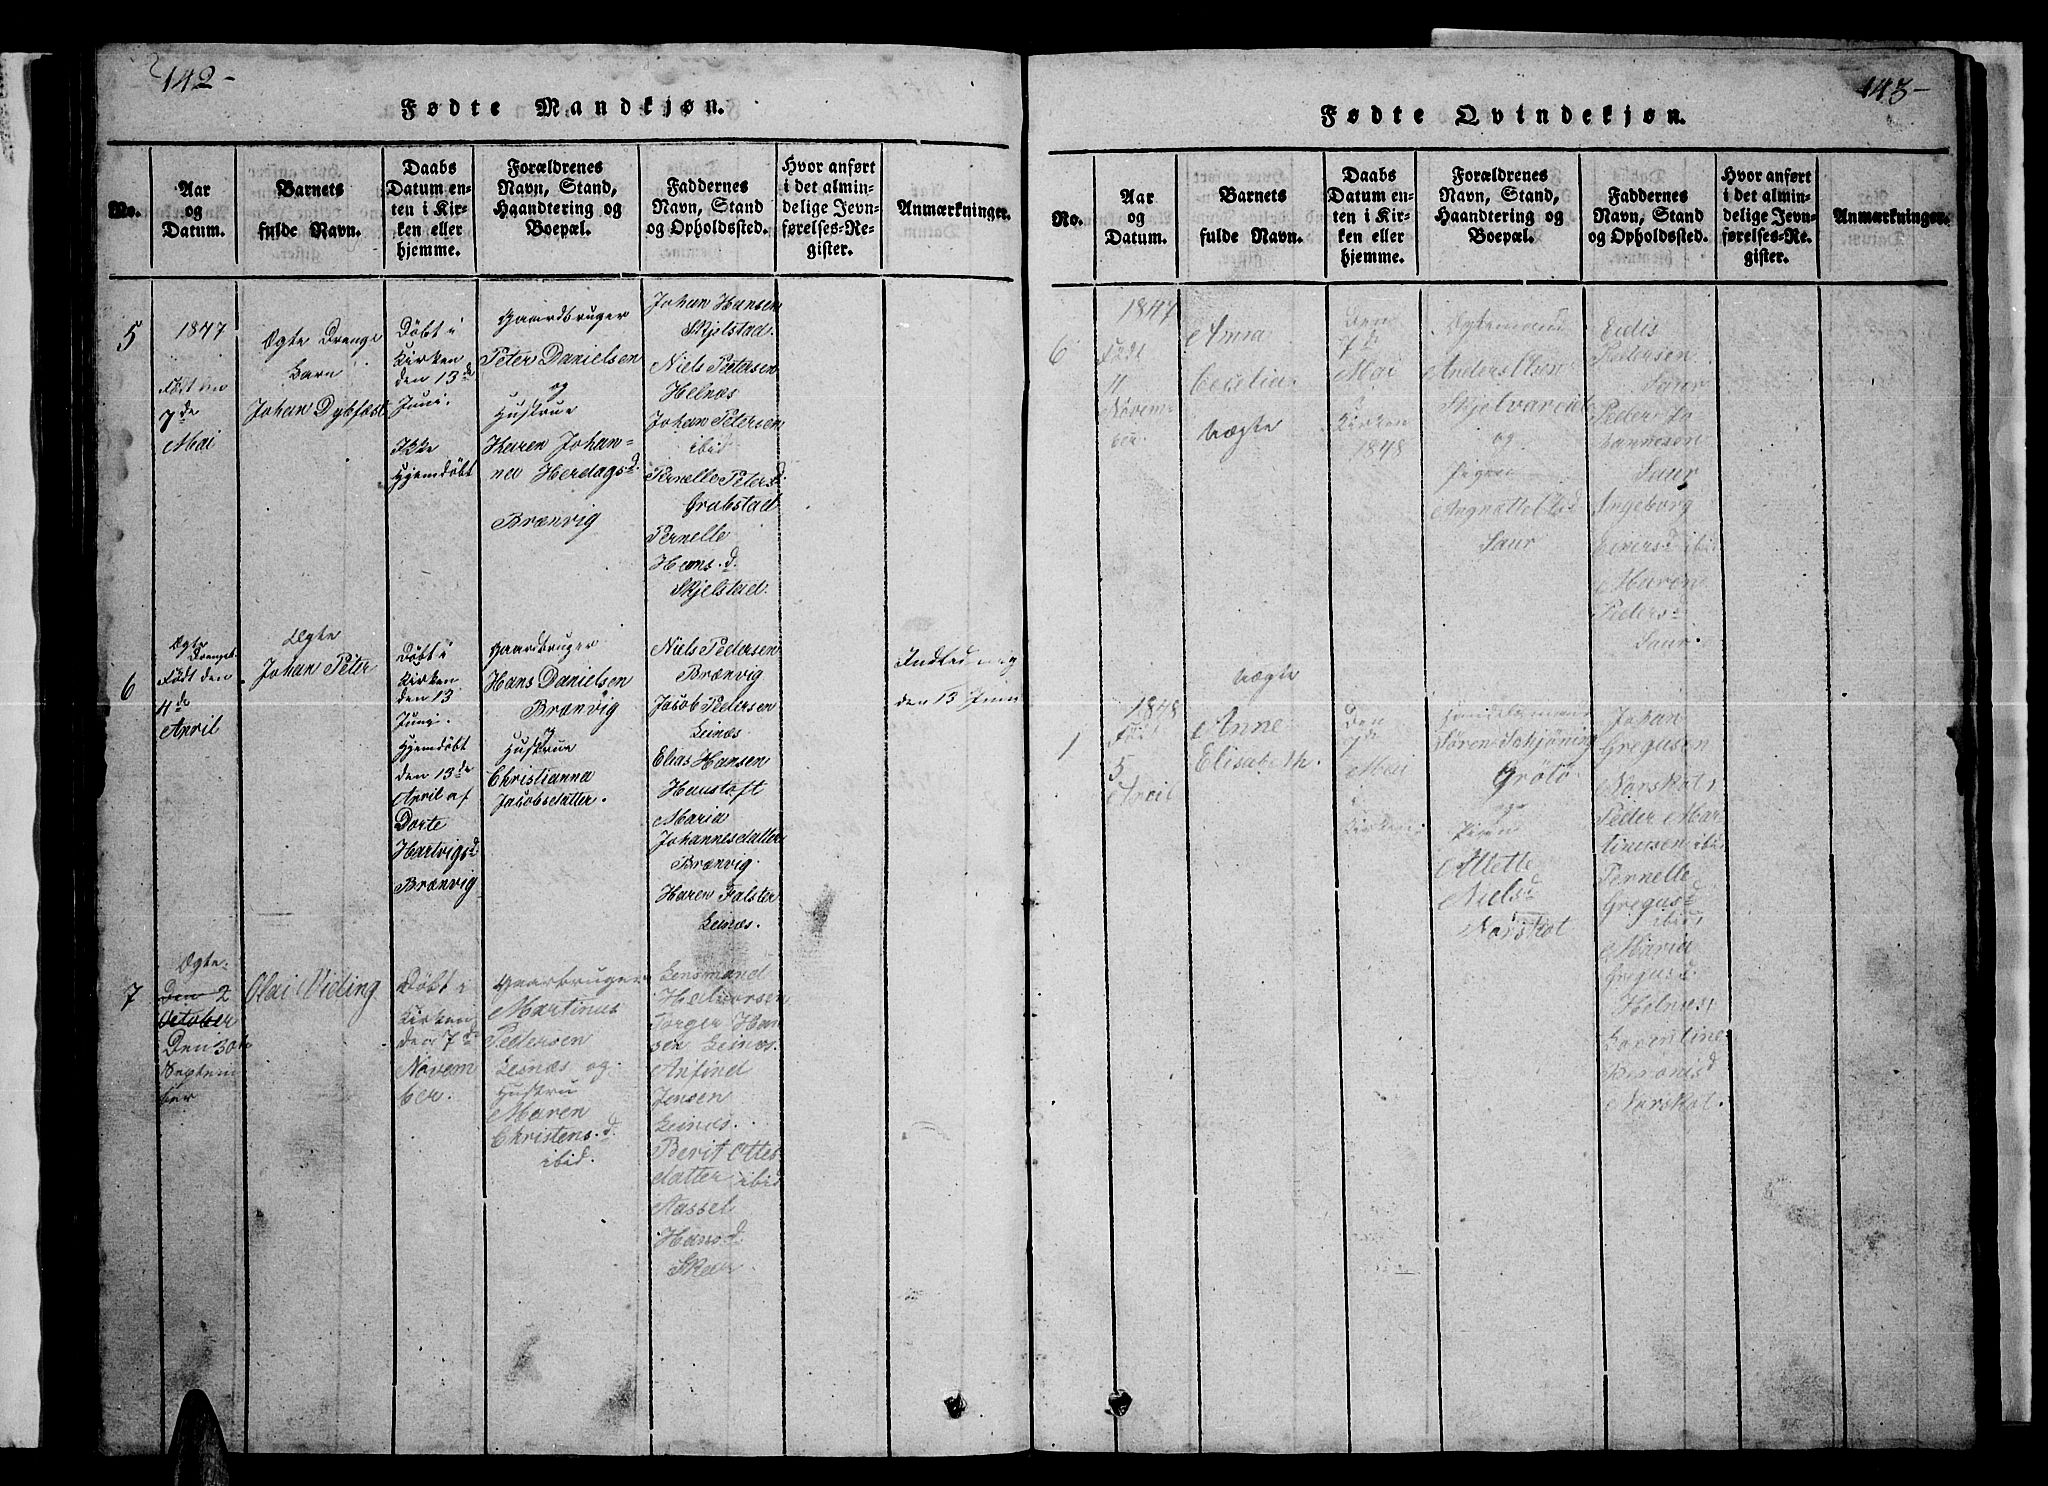 142-
Fødte Mandkjøn.
No.
Aar
og
Datum.
Barnets
fulde Navn.
Daabs
Datum en-
ten i Kir-
ken eller
hjemme.
Forældrenes
Navn, Stand,
Haandtering og
Boepæl.
Faddernes
Navn, Stand
og Opholdssted.
Hvor anført
i det almin-
delige Jevn-
førelses-Re-
gister.
Anmærkninger.
5
1847
Født den
7de
Mai
Ægte Drenge
Barn
Johan Dybfest
Döbt i
Kirken
den 13de
Juni.
Ikke
Hjemdöbt
Gaardbruger
Peter Danielsen
og
Hustrue
Karen Johan-
nea Herdagsd.
Brænvig
Johan Hansen
Skjelstad.
Niels Petersen
Helnæs
Johan Petersen
ibid
Pernelle Petersd.
Grabstad
Pernelle
Hansd.
Skjelstad.
6
Ægte
Drengeb.
Födt den
4de
April
Ægte
Johan Peter
Döbt i
Kirken
den 13
Juni.
Hjemdöbt
den 13de
April af
Dorte
Hartvigsd.
Brænvig
Gaardbruger
Hans Danielsen
Brænvig
og
Hustrue
Christianna
Jacobsdatter.
Niels Pedersen
Brænvig
Jacob Pedersen
Leinæs
Elias Hansen
Hanstoft
Maria
Johannesdatter
Brænvig
Karen Falster
Leinæs.
den 13 Juni
7
Ægte
Den 2
October
Den 30te
Septem
ber
Olai Vieling
Döbt i
Kirken
den 7de
Novem
ber.
Gaarbruger
Martinus
Pedersen
Leinæs og
Hustru
Maren
Christensd.
ibid.
Lensmand
Halvorsen
Torger Han
sen Leinæs.
Anfind
Jensen
Leinæs.
Berit Ottes
datter ibid
Hassel
Hansd.
143-
Fødte Qvindekjøn.
No.
Aar
og
Datum.
Barnets
fulde Navn.
Daabs
Datum en-
ten i Kir-
ken eller
hjemme.
Forældrenes
Navn, Stand,
Haandtering og
Boepæl.
Faddernes
Navn, Stand
og Opholdssted.
Hvor anført
i det almin-
delige Jevn-
førelses-Re-
gister.
Anmærkninger.
6
1847
Födt
11
Novem-
ber.
Anna
Cecelia.
Uægte
Den
7de
Mai
i
Kirken
1848
Anders Olsen
og
Pigen
Saur
Eidis
Pedersen
Saur
Peder Jo-
hannesen
Saur
Ingeborg
Maren
Pedersd
Saur.
1
1848
Födt
5
April
Uægte
Anne
Elisabeth.
Den
7de
Mai
i
Kirken.
Handelsmand
Sören Schjöning
Grötö
og
Pigen
Allette
Nielsd
Norskot
Johan
Gregusen
Norskot,
Peder Mar-
tinusen ibid
Pernelle
Gregusd
ibid,
Maria
Gregusd.
Helnæs,
Lorentine
Norskot.